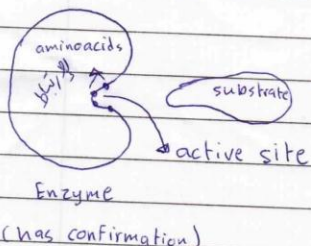 aminoacids
substrate
active site
Enzyme
(has confirmation)